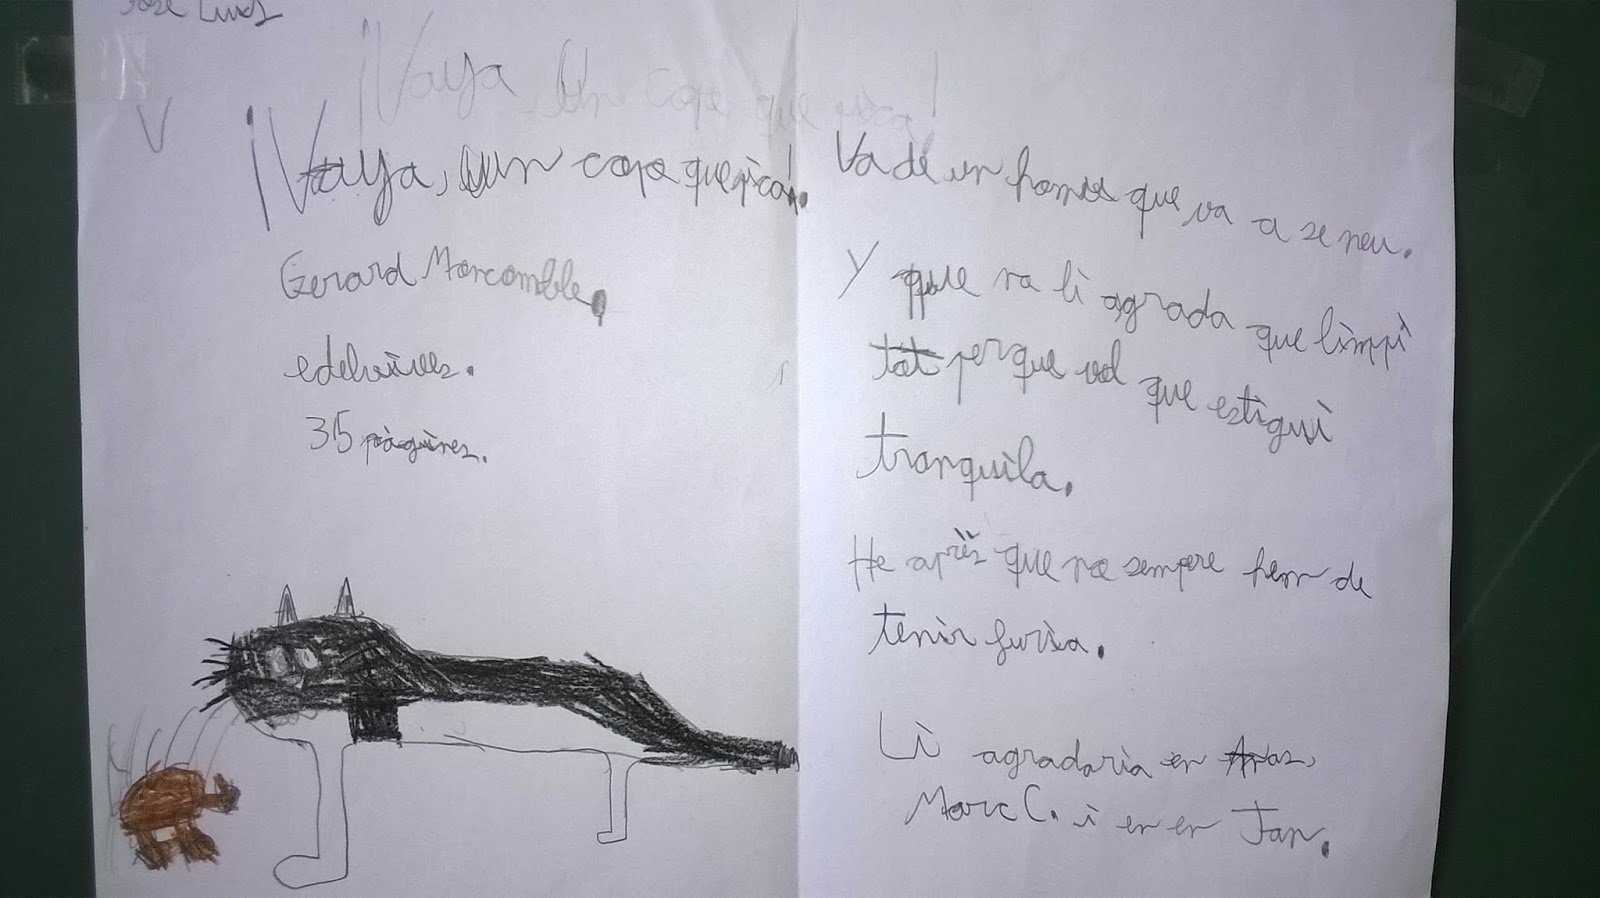 Jose Luis
¡Vaya Un capa que pica!
V
¡Vaya, un capa que pica!.
Gerard Moncomble.
edelvives.
35 pàgines.
Va de un home que va a se neu.
Y que no li agrada que limpi
tot perque vol que estigui
tranquila.
He après que no sempre hem de
tenir furia.
Li agradaria en
Marc C. i en en Jan.